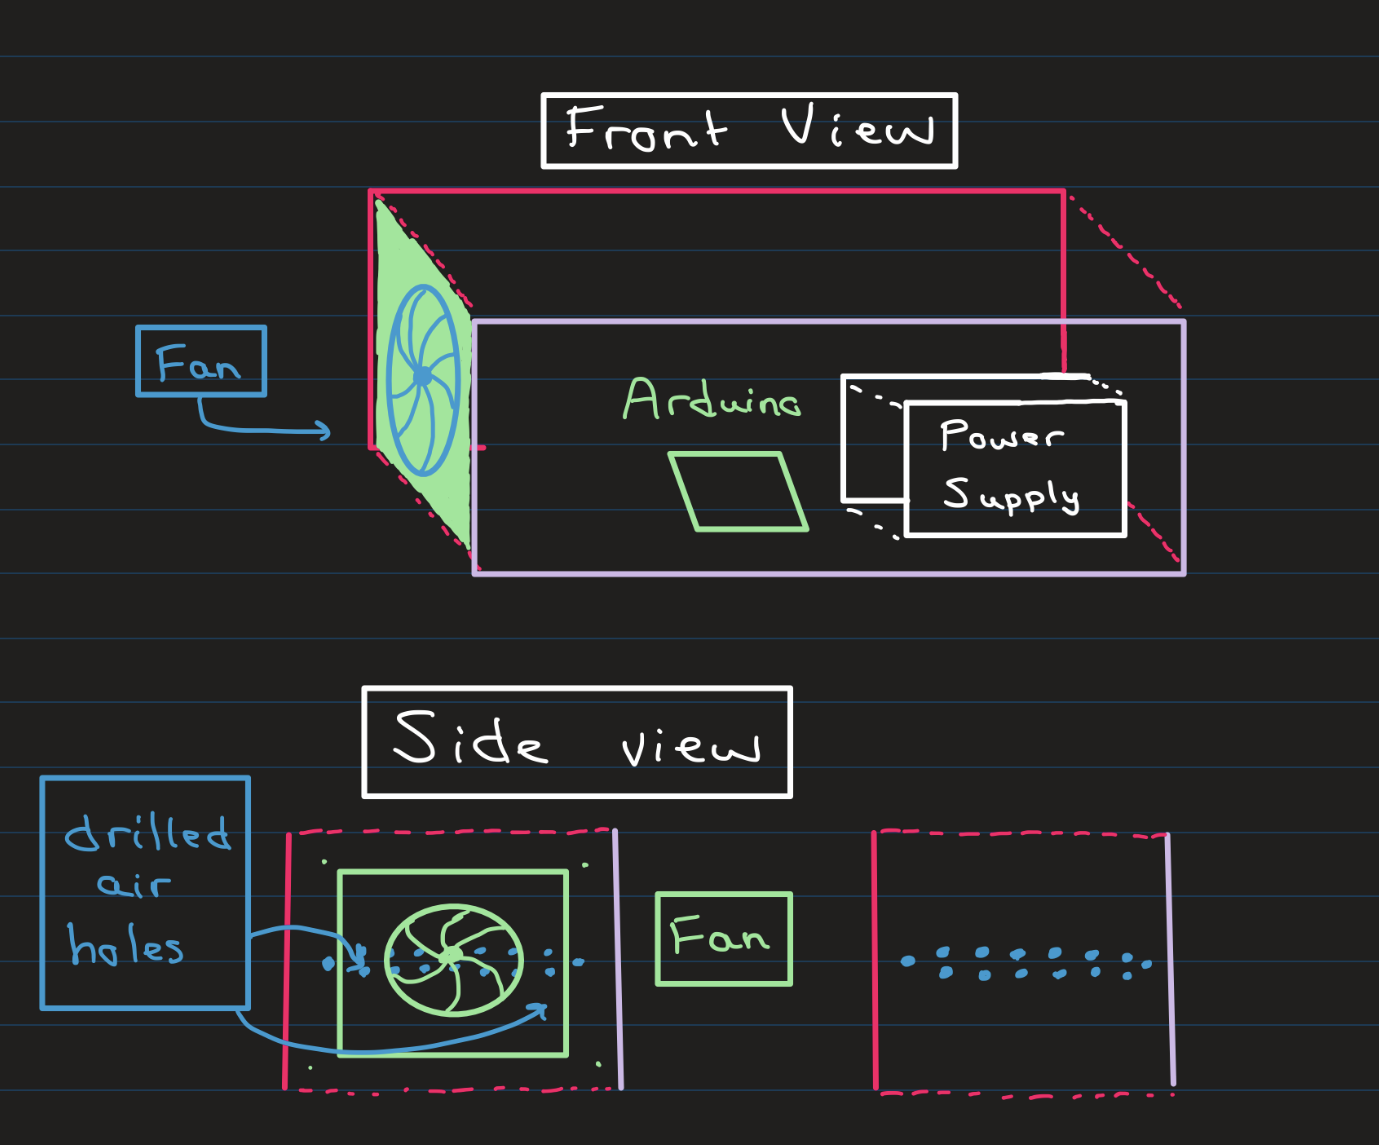 Front View
Fan
Arduino
Power
Supply
Side view
drilled
air
holes
Fan